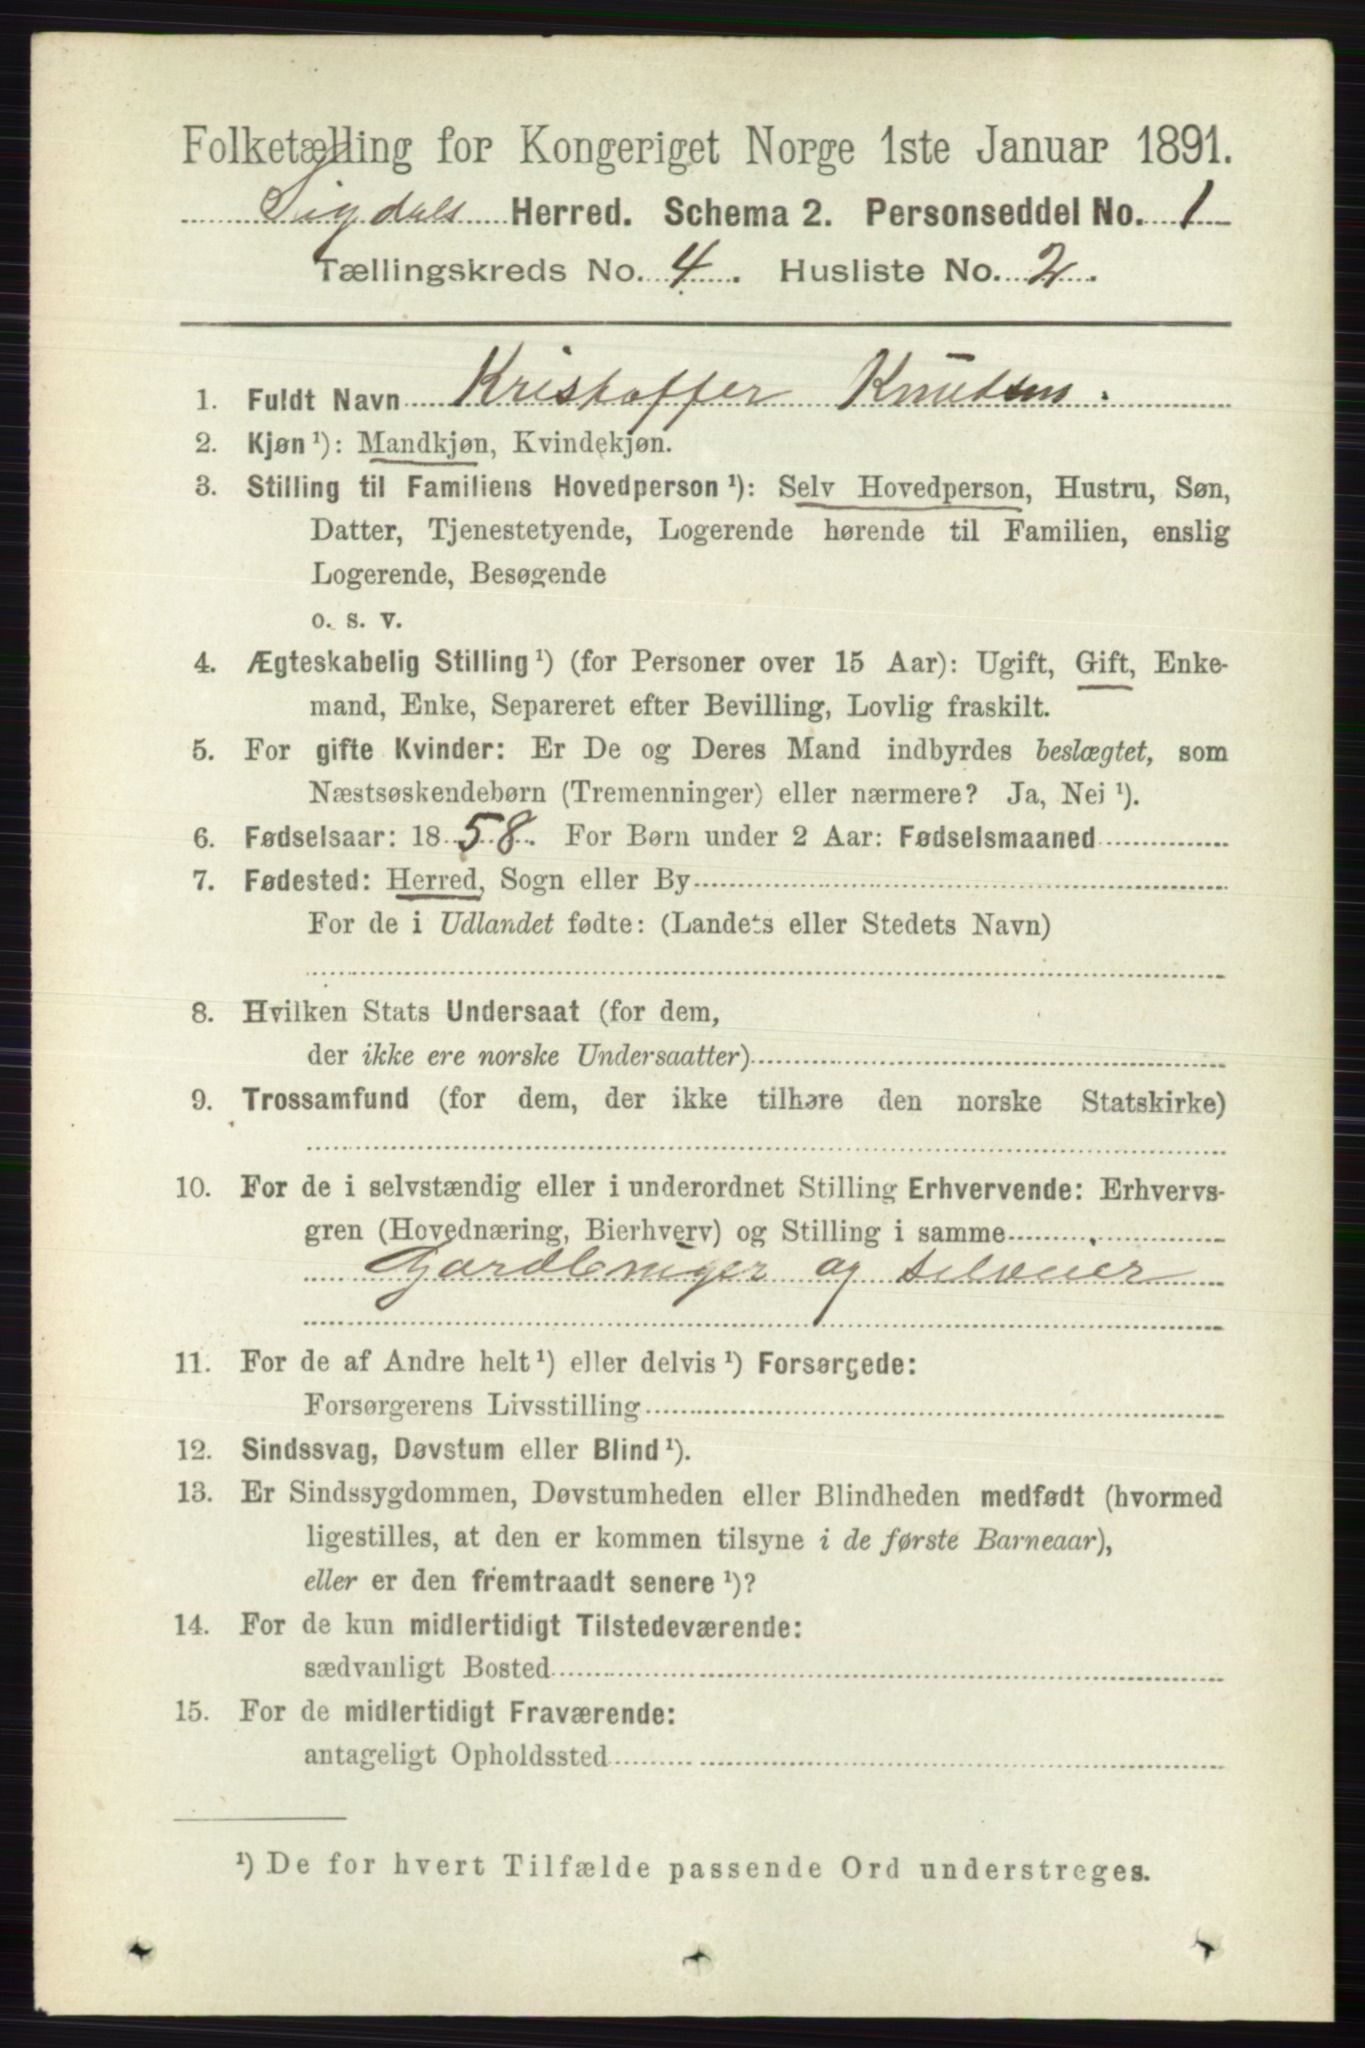 Folketælling for Kongeriget Norge 1ste Januar 1891.
Sigdals Herred. Schema 2. Personseddel No. 1
Tællingskreds No. 4. Husliste No. 2.
1. Fuldt Navn Kristoffer Knutsen.
2. Kjøn¹): Mandkjøn, Kvindekjøn.
3. Stilling til Familiens Hovedperson¹): Selv Hovedperson, Hustru, Søn,
Datter, Tjenestetyende, Logerende hørende til Familien, enslig
Logerende, Besøgende
o. s. v.
4. Ægteskabelig Stilling¹) (for Personer over 15 Aar): Ugift, Gift, Enke-
mand, Enke, Separeret efter Bevilling, Lovlig fraskilt.
5. For gifte Kvinder: Er De og Deres Mand indbyrdes beslægtet, som
Næstsøskendebørn (Tremenninger) eller nærmere? Ja, Nei¹).
6. Fødselsaar: 1858. For Børn under 2 Aar: Fødselsmaaned
7. Fødested: Herred, Sogn eller By
For de i Udlandet fødte: (Landets eller Stedets Navn)
8. Hvilken Stats Undersaat (for dem,
der ikke ere norske Undersaatter)
9. Trossamfund (for dem, der ikke tilhøre den norske Statskirke)
10. For de i selvstændig eller i underordnet Stilling Erhvervende: Erhvervs-
gren (Hovednæring, Bierhverv) og Stilling i samme
Gardbruger og selveier
11. For de af Andre helt¹) eller delvis¹) Forsørgede:
Forsørgerens Livsstilling
12. Sindssvag, Døvstum eller Blind¹).
13. Er Sindssygdommen, Døvstumheden eller Blindheden medfødt (hvormed
ligestilles, at den er kommen tilsyne i de første Barneaar),
eller er den fremtraadt senere¹)?
14. For de kun midlertidigt Tilstedeværende:
sædvanligt Bosted
15. For de midlertidigt Fraværende:
antageligt Opholdssted
¹) De for hvert Tilfælde passende Ord understreges.